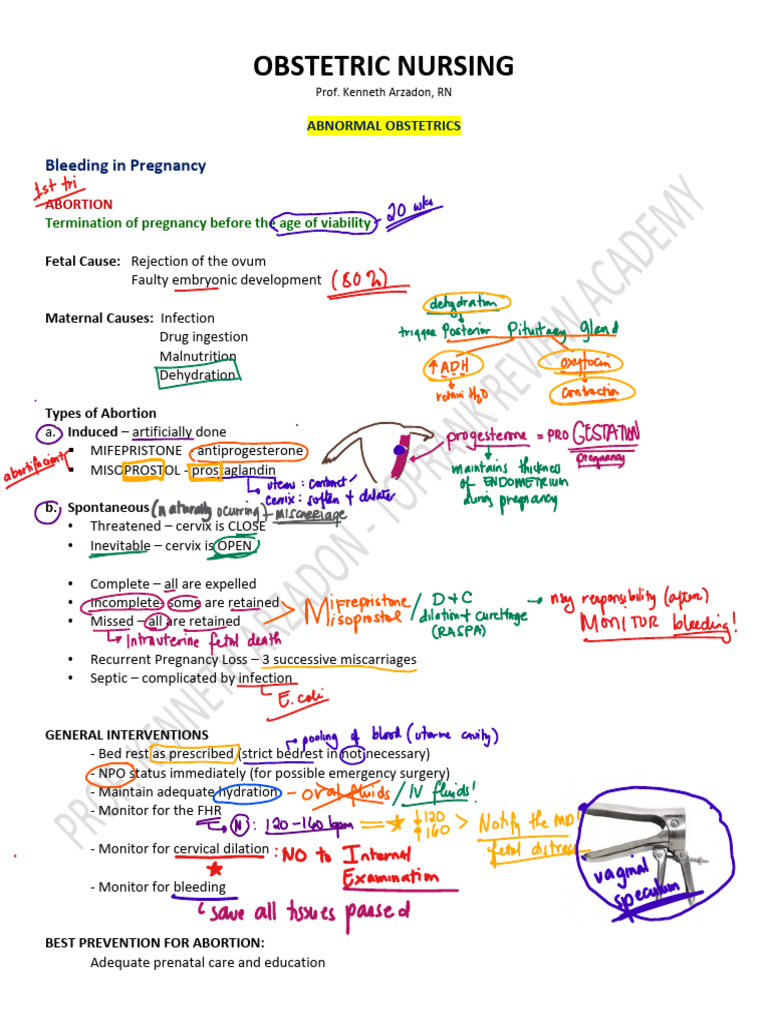 OBSTETRIC NURSING
Prof. Kenneth Arzadon, RN
ABNORMAL OBSTETRICS
Bleeding in Pregnancy
1st tri
ABORTION
Termination of pregnancy before the age of viability - 20 wks
Fetal Cause: Rejection of the ovum
Faulty embryonic development (80%)
Maternal Causes: Infection
Drug ingestion
Malnutrition
Dehydration
dehydration
trigger Posterior Pituitary gland
↑ ADH
oxytocin
retain H2O
contraction
Types of Abortion
a. Induced – artificially done
▪ MIFEPRISTONE - antiprogesterone
▪ MISOPROSTOL - prostaglandin
abortifacient
uterus: contract
cervix: soften + dilate
progesterone = PRO GESTATION
pregnancy
maintains thickness
of ENDOMETRIUM
during pregnancy
b. Spontaneous (naturally occurring) - miscarriage
• Threatened – cervix is CLOSE
• Inevitable – cervix is OPEN
• Complete – all are expelled
• Incomplete- some are retained
• Missed – all are retained
> Mifepristone
Misoprostol
/ D+C
dilation + curettage
(RASPA)
→ nsg responsibility (after)
MONITOR bleeding!
Intrauterine fetal death
• Recurrent Pregnancy Loss – 3 successive miscarriages
• Septic – complicated by infection
E. coli
GENERAL INTERVENTIONS
pooling of blood (uterine cavity)
- Bed rest as prescribed (strict bedrest in not necessary)
- NPO status immediately (for possible emergency surgery)
- Maintain adequate hydration - oral fluids / IV fluids!
- Monitor for the FHR
(N): 120-160 bpm = ★ ↓120
↑160 > Notify the MD!
fetal distress
- Monitor for cervical dilation : NO to Internal
Examination
- Monitor for bleeding
save all tissues passed
vaginal
speculum
BEST PREVENTION FOR ABORTION:
Adequate prenatal care and education
PROF KENNETH ARZADON - TOPRANK REVIEW ACADEMY